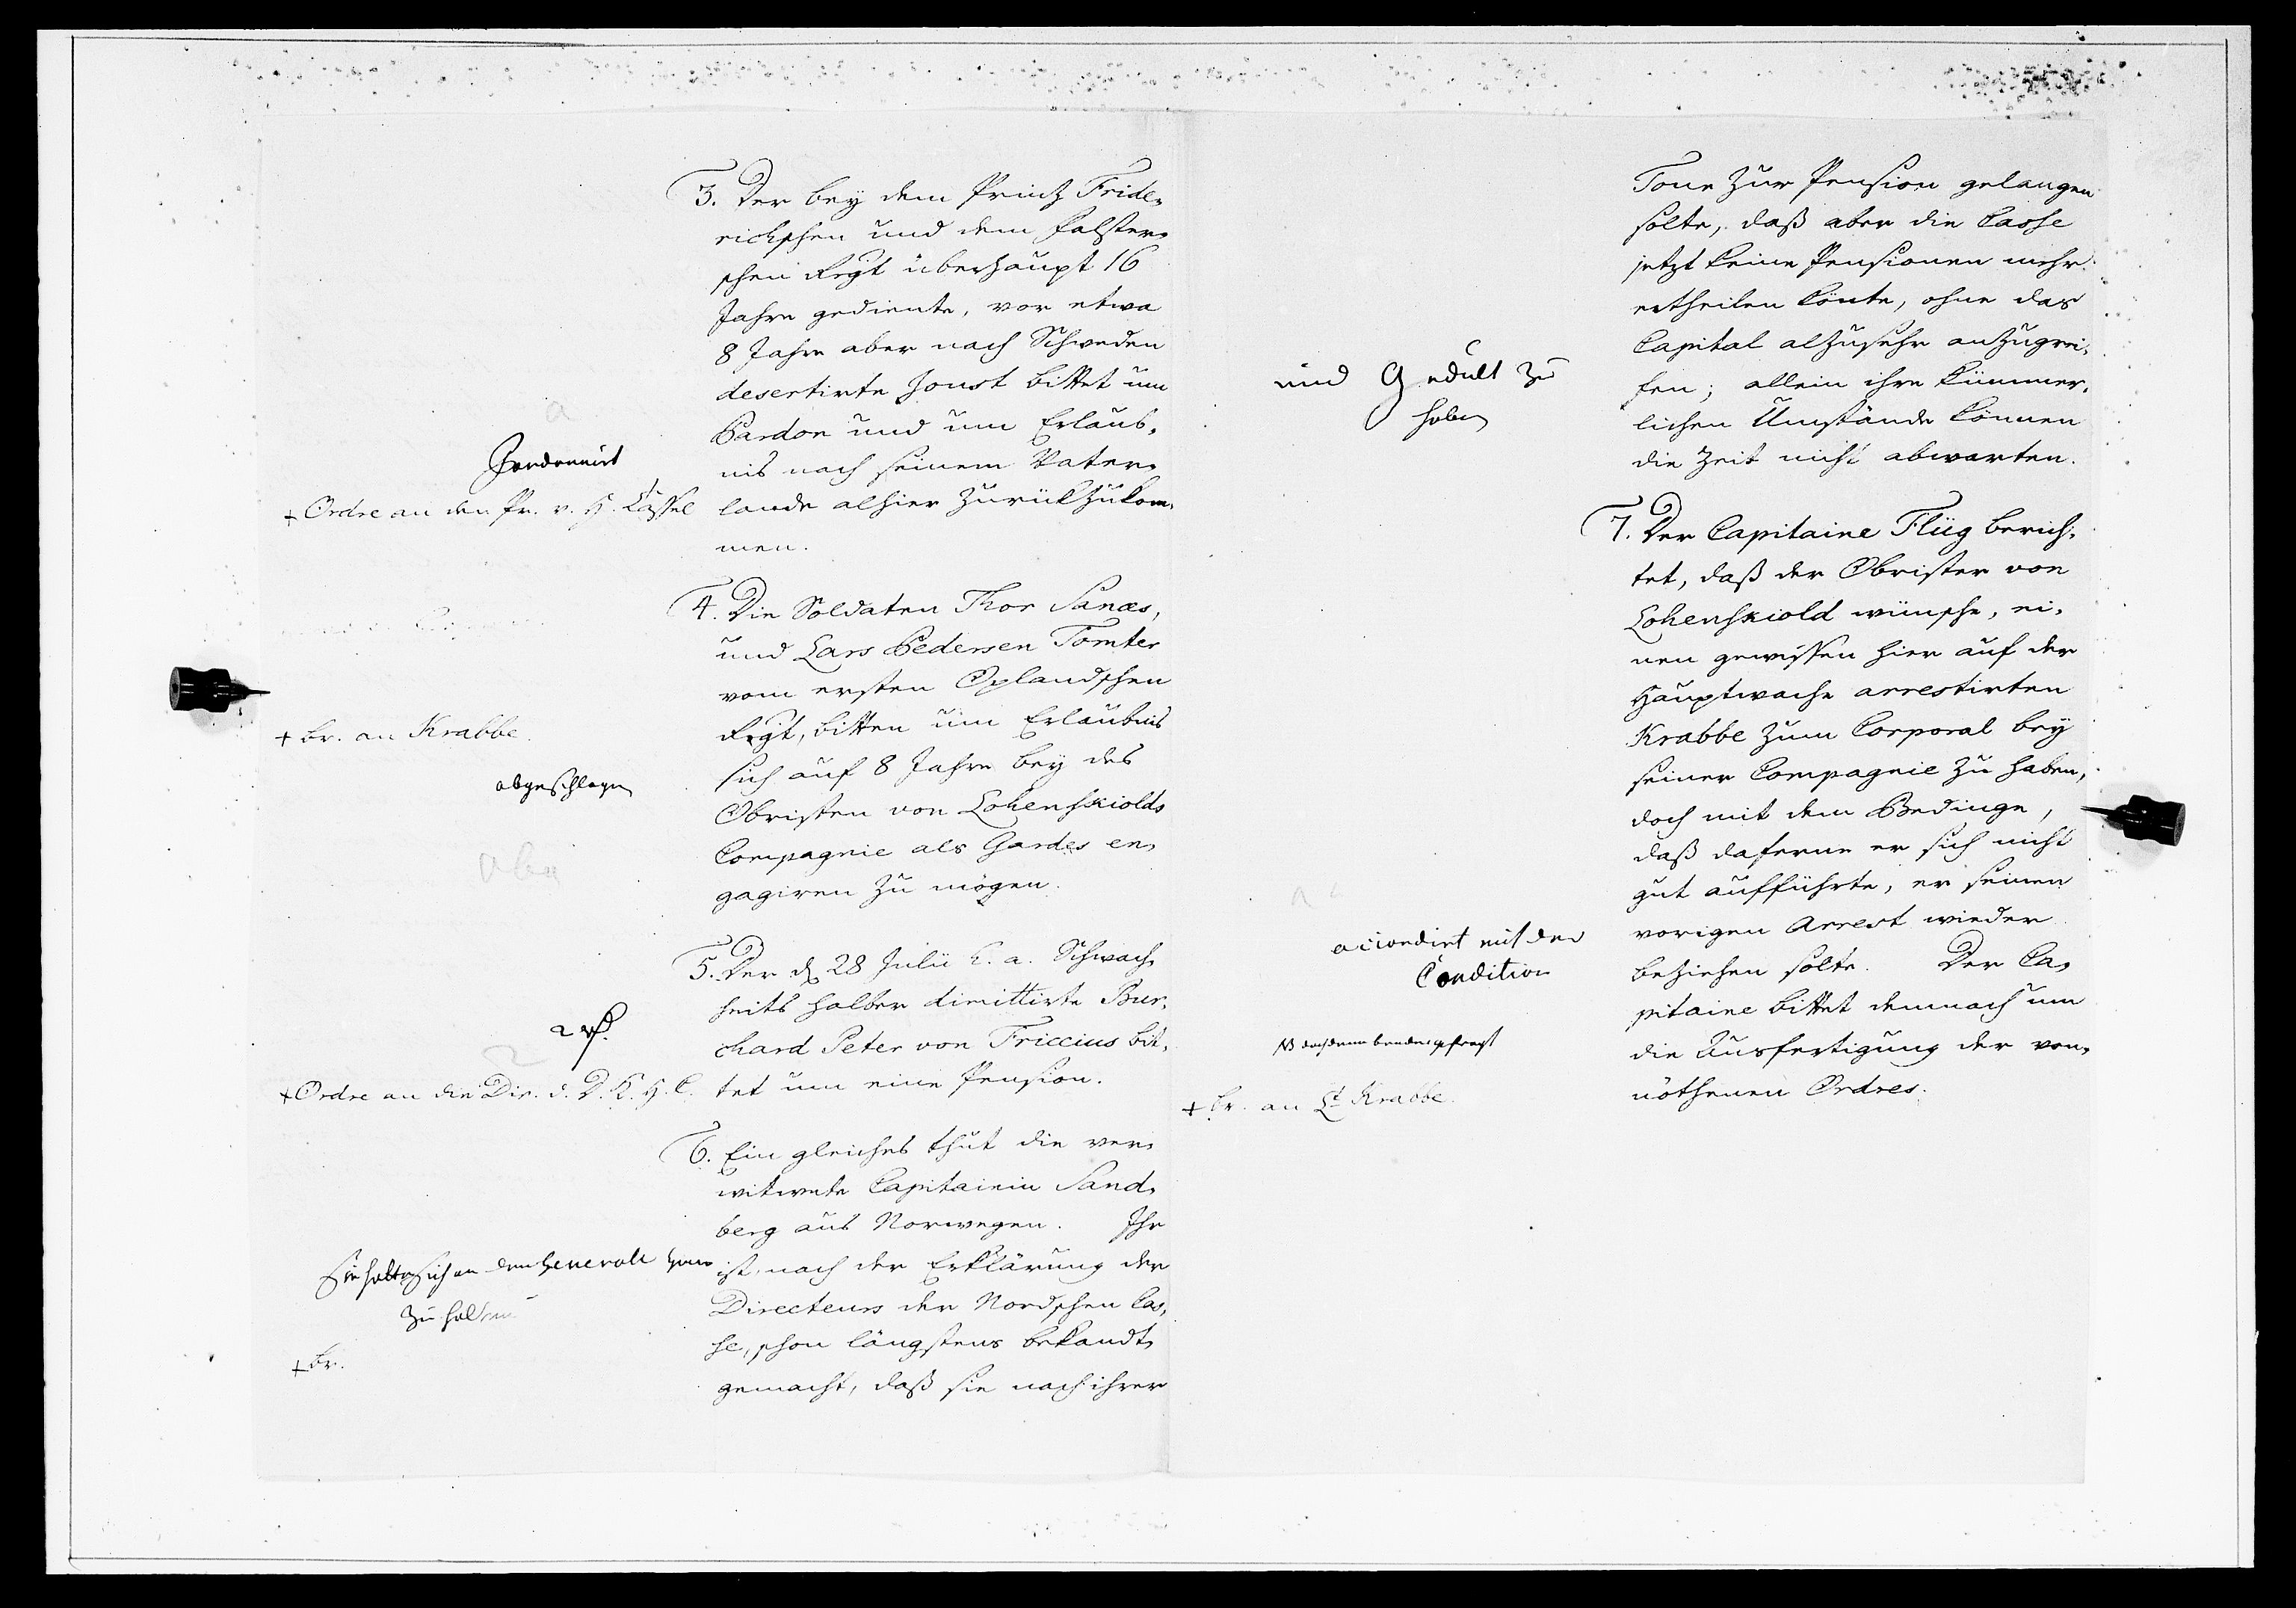 3. Der bey dem Printz Fride-
richschen und dem Falster-
schen Regt überhaupt 16
Jahre gediente, vor etwa
8 Jahre aber nach Schweden
desertirte Joust bittet um
Pardon und um Erlaub-
nis nach seinem Vater-
lande alhier zurück zu kom-
men.
Pardonnirt
+ Ordre an den Pr. v. H. Cassel
4. Die Soldaten Thor Sanæs,
und Lars Pedersen Tomter
vom ersten Oplandschen
Regt, bitten um Erlaubnis
sich auf 8 Jahre bey des
Obristen von Lohenskiolds
Compagnie als Gardes en-
gagiren zu mögen.
+ br. an Krabbe.
abgeschlagen
5. Der d. 28 Julii h. a. Schwach-
heits halber dimittirte Bur-
chard Peter von Friccius bit-
tet um eine Pension.
+ Ordre an die Dir. d. D. K. H. C.
6. Ein gleiches thut die ver-
witwete Capitainin Sand-
berg aus Norwegen. Ihr
ist, nach der Erklärung der
Directeurs der Nordschen Cas-
se, schon längstens bekandt
gemacht, daß sie nach ihrer
zu halten
+ br.
Tour zur Pension gelangen
solte, daß aber die Casse
jetzt keine Pensionen mehr
ertheilen könte, ohne das
Capital alzusehr anzugrei-
fen; allein ihre kümmer-
lichen Umstände können
die Zeit nicht abwarten.
und Gedult zu
haben
7. Der Capitaine Flüg berich-
tet, daß der Obrister von
Lohenskiold wünsche, ei-
nen gewissen hier auf der
Hauptwache arrestirten
Krabbe zum Corporal bey
seiner Compagnie zu haben,
doch mit dem Bedinge,
daß daferne er sich nicht
gut aufführte, er seinen
vorigen Arrest wieder
beziehen solte. Der Ca-
pitaine bittet demnach um
die Ausfertigung der von-
nöthenen Ordres.
accordirt mit der
Condition
+ br. an Lt Krabbe.